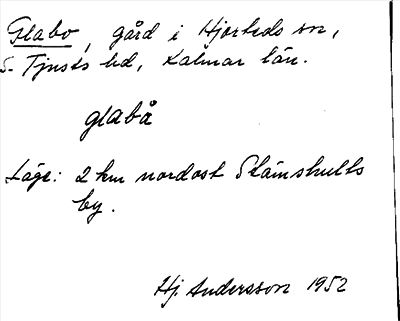 Glabo, gård i Hjorteds sn,
S. Tjusts hd, Kalmar län.
glabå
Läge: 2 km nordost Slämshults
by.
Hj. Andersson 1952